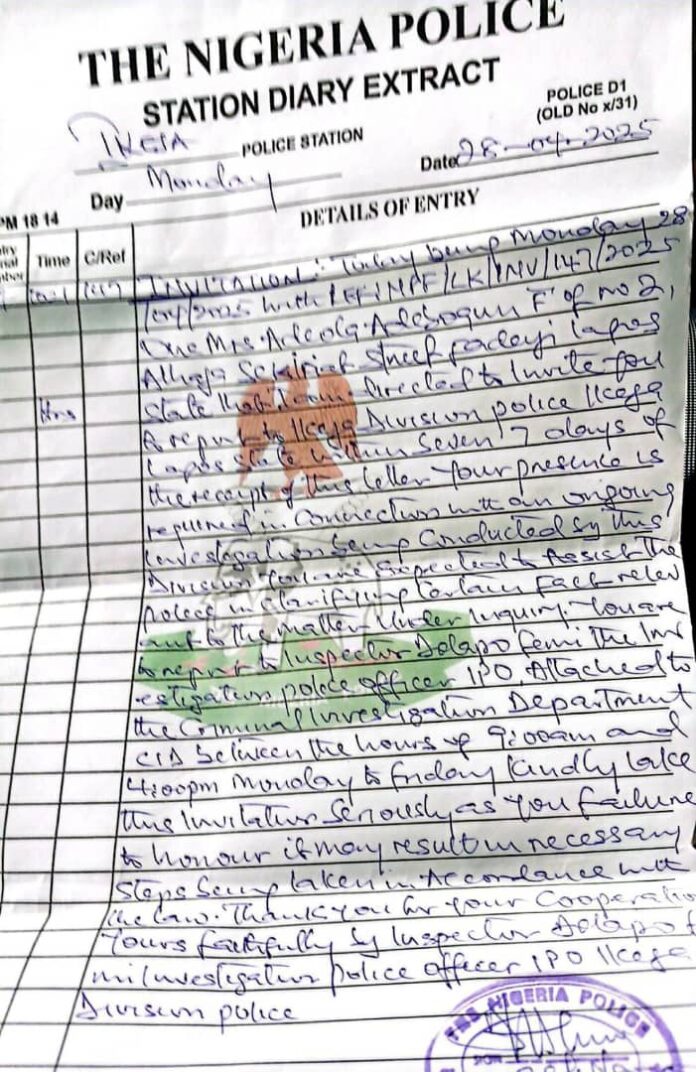 THE NIGERIA POLICE
STATION DIARY EXTRACT
POLICE D1
(OLD No x/31)
IKEJA POLICE STATION
Day Monday Date 28-04-2025
PM 18 14
DETAILS OF ENTRY
Time C/Ref
INVITATION: Today being Monday 28
/04/2025 with REF: NPF/LK/INV/147/2025
One Mrs. Adeola Adebogun F of no 2,
Alhaja Street Fadeyi Lagos
Hrs State that I am directed to Invite you
to report to Ikeja Division police Ikeja
Lagos State within Seven 7 days of
the receipt of this letter Your presence is
required in Connection with an ongoing
Investigation being Conducted by this
Division You are expected to Assist the
Police in clarifying Certain fact relev
ant to the matter under Inquiry. You are
to report to Inspector Adlapo femi the Inv
estigation police officer IPO, Attached to
the Criminal Investigation Department
CID between the hours of 9:00am and
4:00pm Monday to Friday Kindly take
this Invitation Seriously as you failure
to honour it may result in necessary
Steps being taken in Accordance with
the law. Thank you for your Cooperation
Yours faithfully by Inspector Adlapo f
mi Investigation police officer IPO Ikeja
Division police
THE NIGERIA POLICE